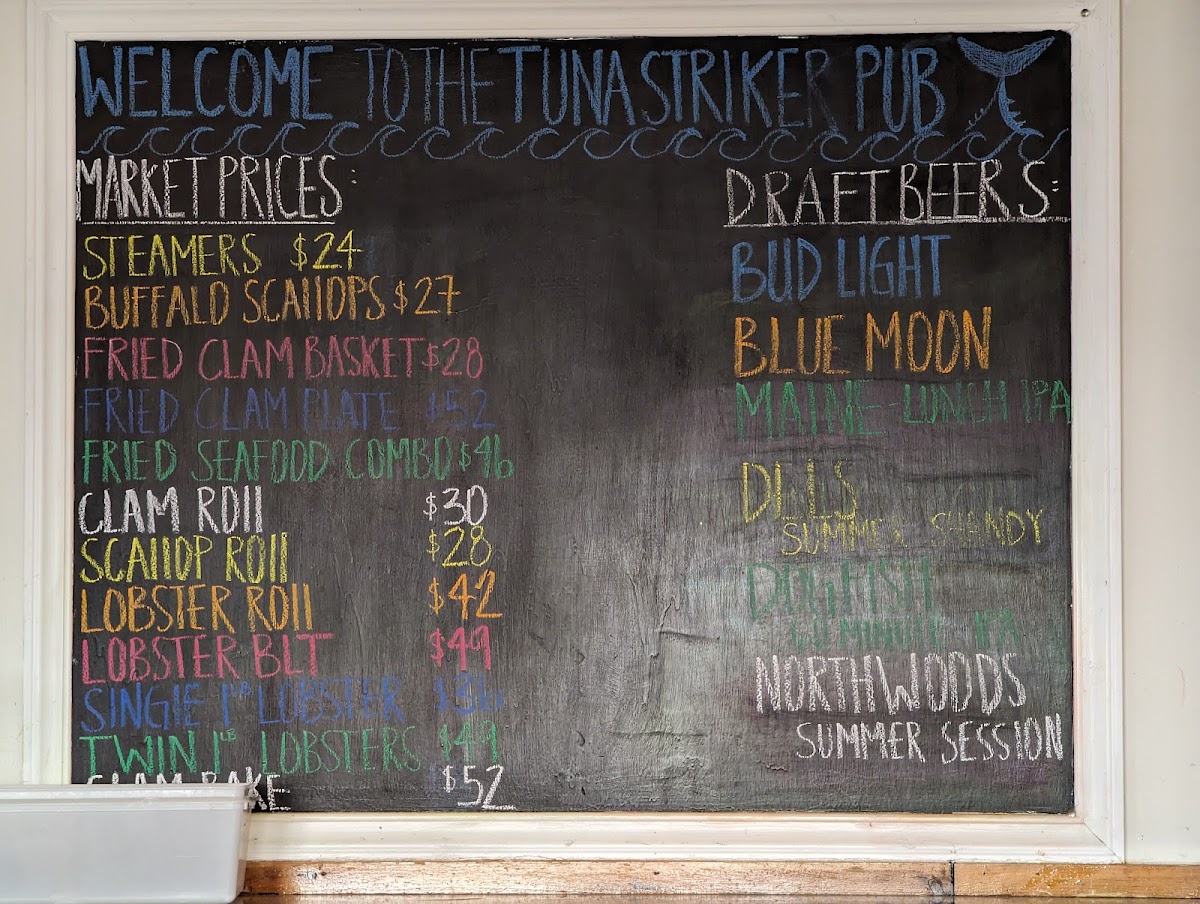 WELCOME TO THE TUNA STRIKER PUB
MARKET PRICES:
STEAMERS $24
BUFFALO SCALLOPS $27
FRIED CLAM BASKET $28
FRIED CLAM PLATE $52
FRIED SEAFOOD COMBO $46
CLAM ROLL $30
SCALLOP ROLL $28
LOBSTER ROLL $42
LOBSTER BLT $49
SINGLE 1LB LOBSTER $36
TWIN 1LB LOBSTERS $49
CLAM BAKE $52
DRAFT BEERS:
BUD LIGHT
BLUE MOON
MAINE LUNCH IPA
SUMMER SHANDY
DOGFISH
IPA
NORTHWOODS
SUMMER SESSION